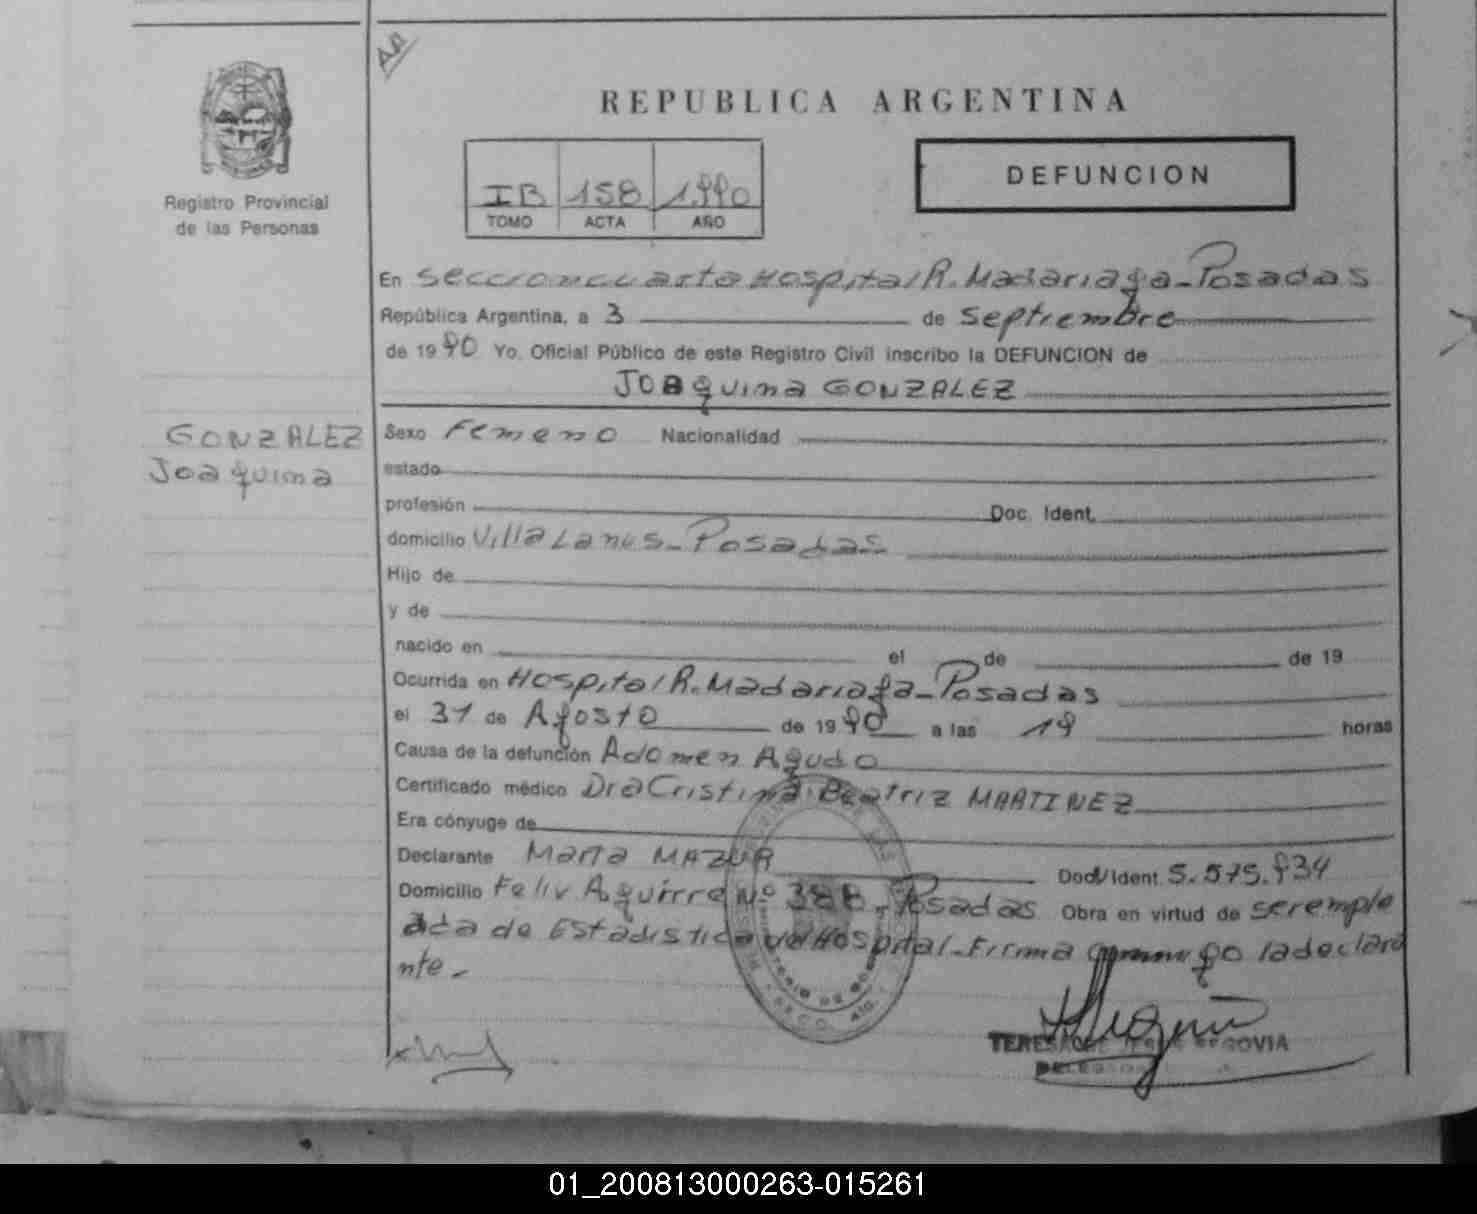 REPUBLICA ARGENTINA
Registro Provincial
de las Personas
IB 158 1.990
TOMO ACTA AÑO
DEFUNCION
En Seccion cuarta Hospital R. Madariaga - Posadas
República Argentina, a 3 de Septiembre
de 1990 Yo, Oficial Público de este Registro Civil inscribo la DEFUNCION de
JOaquina GONZALEZ
GONZALEZ
Joaquina
Sexo Femeno Nacionalidad
estado
profesión Doc. Ident.
domicilio Villa Lanus - Posadas
Hijo de
y de
nacido en el de de 19
Ocurrida en Hospital R. Madariaga - Posadas
el 31 de Agosto de 1990 a las 19 horas
Causa de la defunción Adomen Agudo
Certificado médico Dra Cristina Beatriz MARTINEZ
Era cónyuge de
Declarante Marta MAZUR Doc. Ident. 5.575.934
Domicilio Felix Aguirre Nº 388 - Posadas Obra en virtud de ser emple
ada de Estadistica del Hospital - Firma go la declara
nte -
TERESA DE JESUS SEGOVIA
DELEGADA
01_200813000263-015261